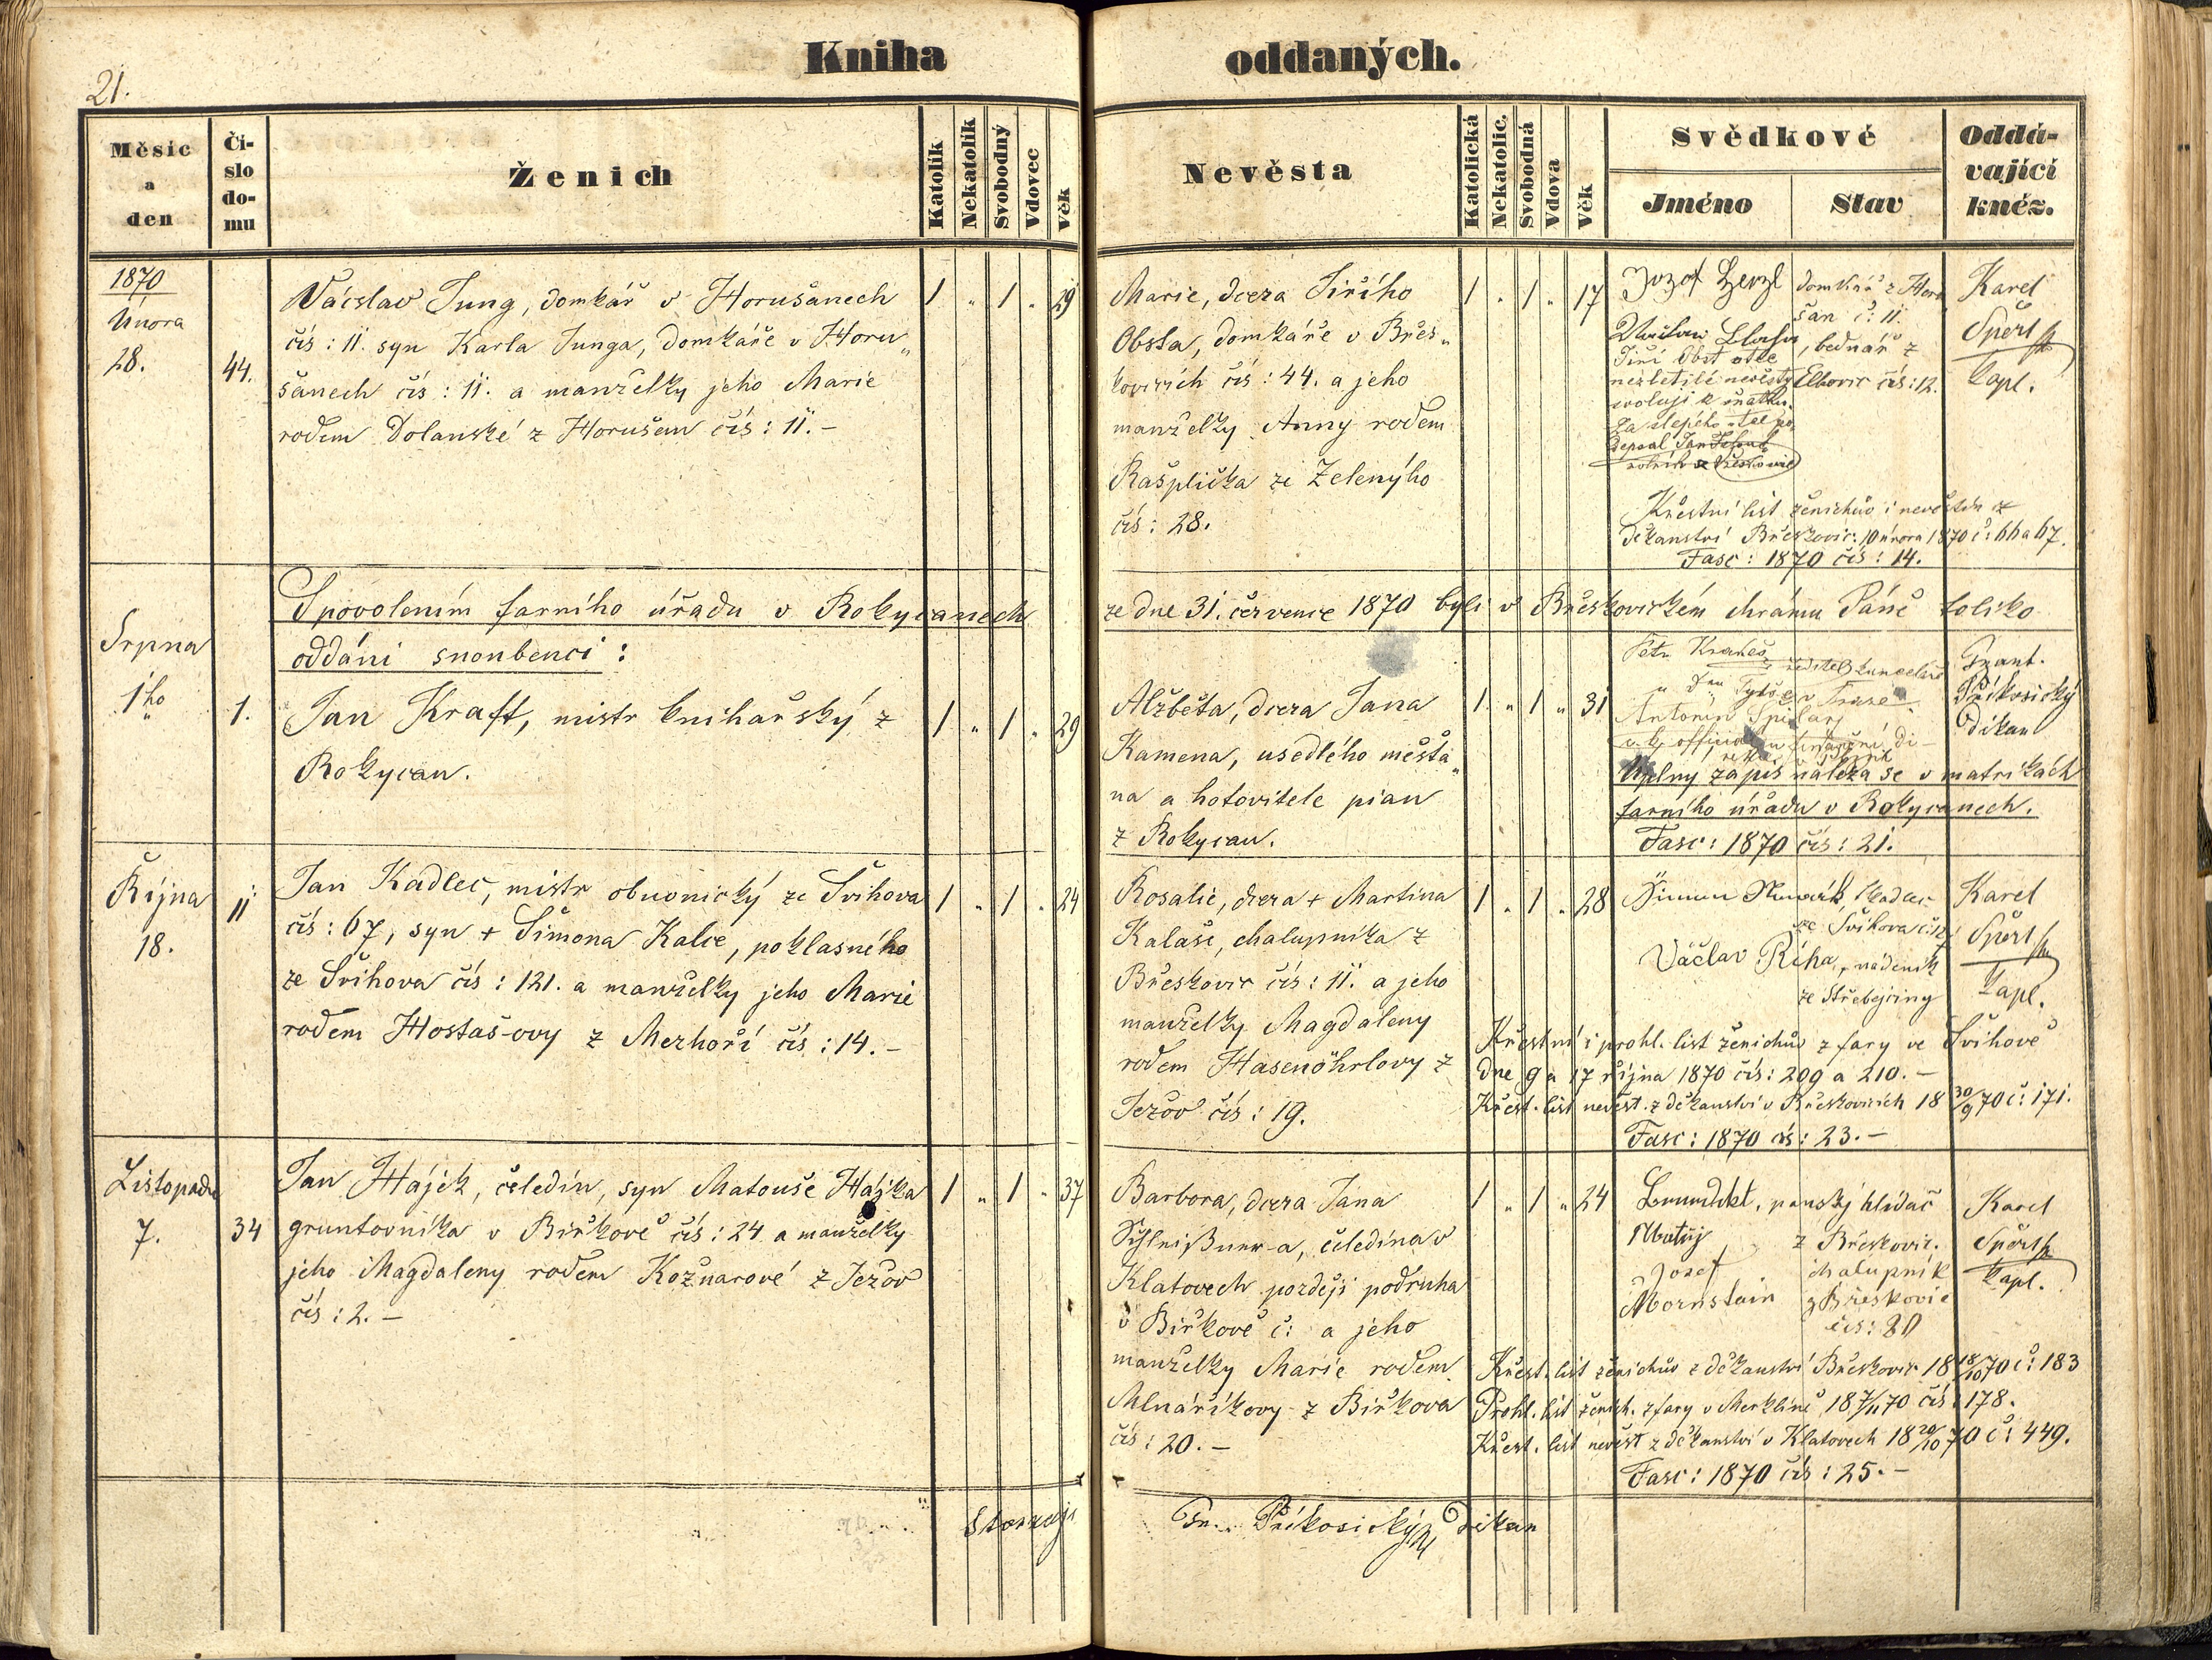 21.
Kniha oddaných.
Měsíc a den
Číslo domu
Ženich
Katolík
Nekatolík
Svobodný
Vdovec
Věk
Nevěsta
Katolická
Nekatolic.
Svobodná
Vdova
Věk
Svědkové
Jméno
Stav
Oddávající kněz.
1870
Února
28.
44.
Václav Jung, domkář v Horušanech
čís: 11. syn Karla Junga, domkáře v Horu„
šanech čís: 11. a manželky jeho Marie
rodem Dolanské z Horušan čís: 11. –
1 „ 1 „ 29
Marie, dcera Jiřího
Obsta, domkáře v Břes„
kovicích čís: 44. a jeho
manželky Anny rodem
Rašplička ze Zelenýho
čís: 28.
1 „ 1 „ 17
Jozof domkář z Horu
šan č: 11.
, bednář z
Jiří Obst otec
nezletilé nevěsty Elhovic čís: 12.
svoluji k sňatku
Za slepého otce po
depsal Jan
rolník z Břeskovic
Karel
Špert
kapl.
Křestní list ženichův i nevěstin z
děkanství Břeskovic: 10 února 1870 č: 66 a 67.
Fasc: 1870 čís: 14.
S povolením farního úřadu v Rokycanech ze dne 31. července 1870 byli v Břeskovickém chrámu Páně toliko
oddáni snoubenci:
Srpna
1ho
1.
Jan Kraft, mistr knihařský z
Rokycan.
1 „ 1 „ 29
Alžběta, dcera Jana
Kamena, usedlého měšťa„
na a hotovitele pian
z Rokycan.
1 „ 1 „ 31
Petr
ředitel kanceláře
Antonín
c. k. official
Frant.
Příkosický
děkan
Úplny zápis náleza se v matrikách
farního úřadu v Rokycanech.
Fasc: 1870 čís: 21.
Října
18.
11
Jan Kadlec, mistr obuvnický ze Švihova
čís: 67, syn + Šimona Kalce, poklasného
ze Švihova čís: 121. a manželky jeho Marie
rodem Hostaš-ovy z Mezhoří čís: 14. –
1 „ 1 „ 24
Rosalie, dcera + Martina
Kalaše, chalupníka z
Břeskovic čís: 11. a jeho
manželky Magdaleny
rodem Hasenöhrlovy z
Jezov čís: 19.
1 „ 1 „ 28
Šimon
ze Švihova
Václav Říha, nádeník
ze Střebejciny
Karel
Špert
kapl.
Křestní i prohl. list ženichův z fary ve Švihově
dne 9 a 17 října 1870 čís: 209 a 210. –
Křest. list nevěst. z děkanství v Břeskovicích 18 30/9 70 č: 171.
Fasc: 1870 čís: 23. –
Listopadu
7.
34
Jan Hájek, čeledín, syn Matouše Hájka
gruntovníka v Biřkově čís: 24 a manželky
jeho Magdaleny rodem Kožnarové z Jezov
čís: 2. –
1 „ 1 „ 37
Barbora, dcera Jana
čeledína v
Klatovech později podruha
v Biřkově č: a jeho
manželky Marie rodem
Mlnáříkovy z Biřkova
čís: 20. –
1 „ 1 „ 24
panský hlídač
Matěj z Břeskovic.
Josef chalupník
Mornstain z Břeskovic
čís: 80
Karel
Špert
kapl.
Křest. list ženichův z děkanství Břeskovic 18 18/10 70 č: 183
Prohl. list ženich. z fary v Merklíně 18 7/11 70 čís: 178.
Křest. list nevěst z děkanství v Klatovech 18 20/10 70 č: 449.
Fasc: 1870 čís: 25. –
Příkosický děkan